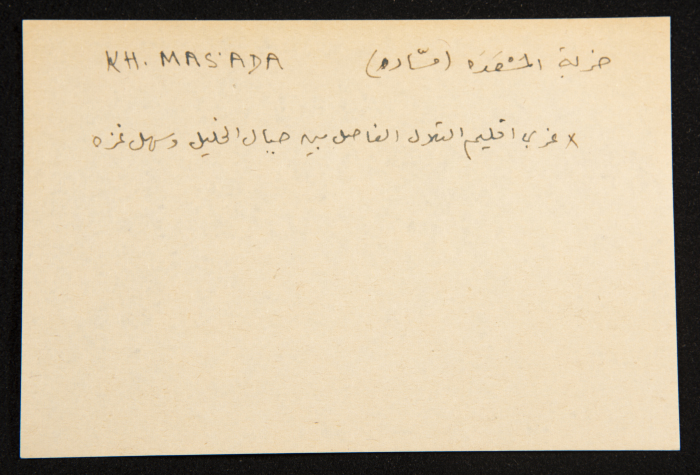 KH. MAS'ADA خربة المسْعَدَه (مسّاده)
x غربي اقليم التلال الفاصل بين جبال الخليل وسهل غزه